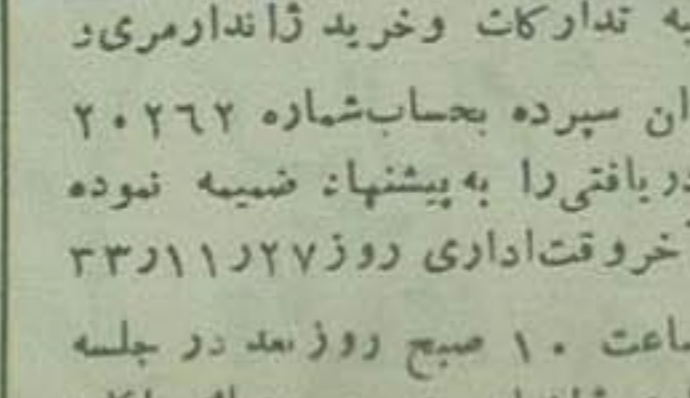 یه تدارکات وخرید ژاندارمری
ان سپرده بحساب‌شماره ۲۰۲٦۲
دریافتی‌را به‌پیشنهاد ضمیمه نموده
خروقت‌اداری روز۲۷ر۱۱ر۳۳
ساعت ۱۰ صبح روزبعد در جلسه